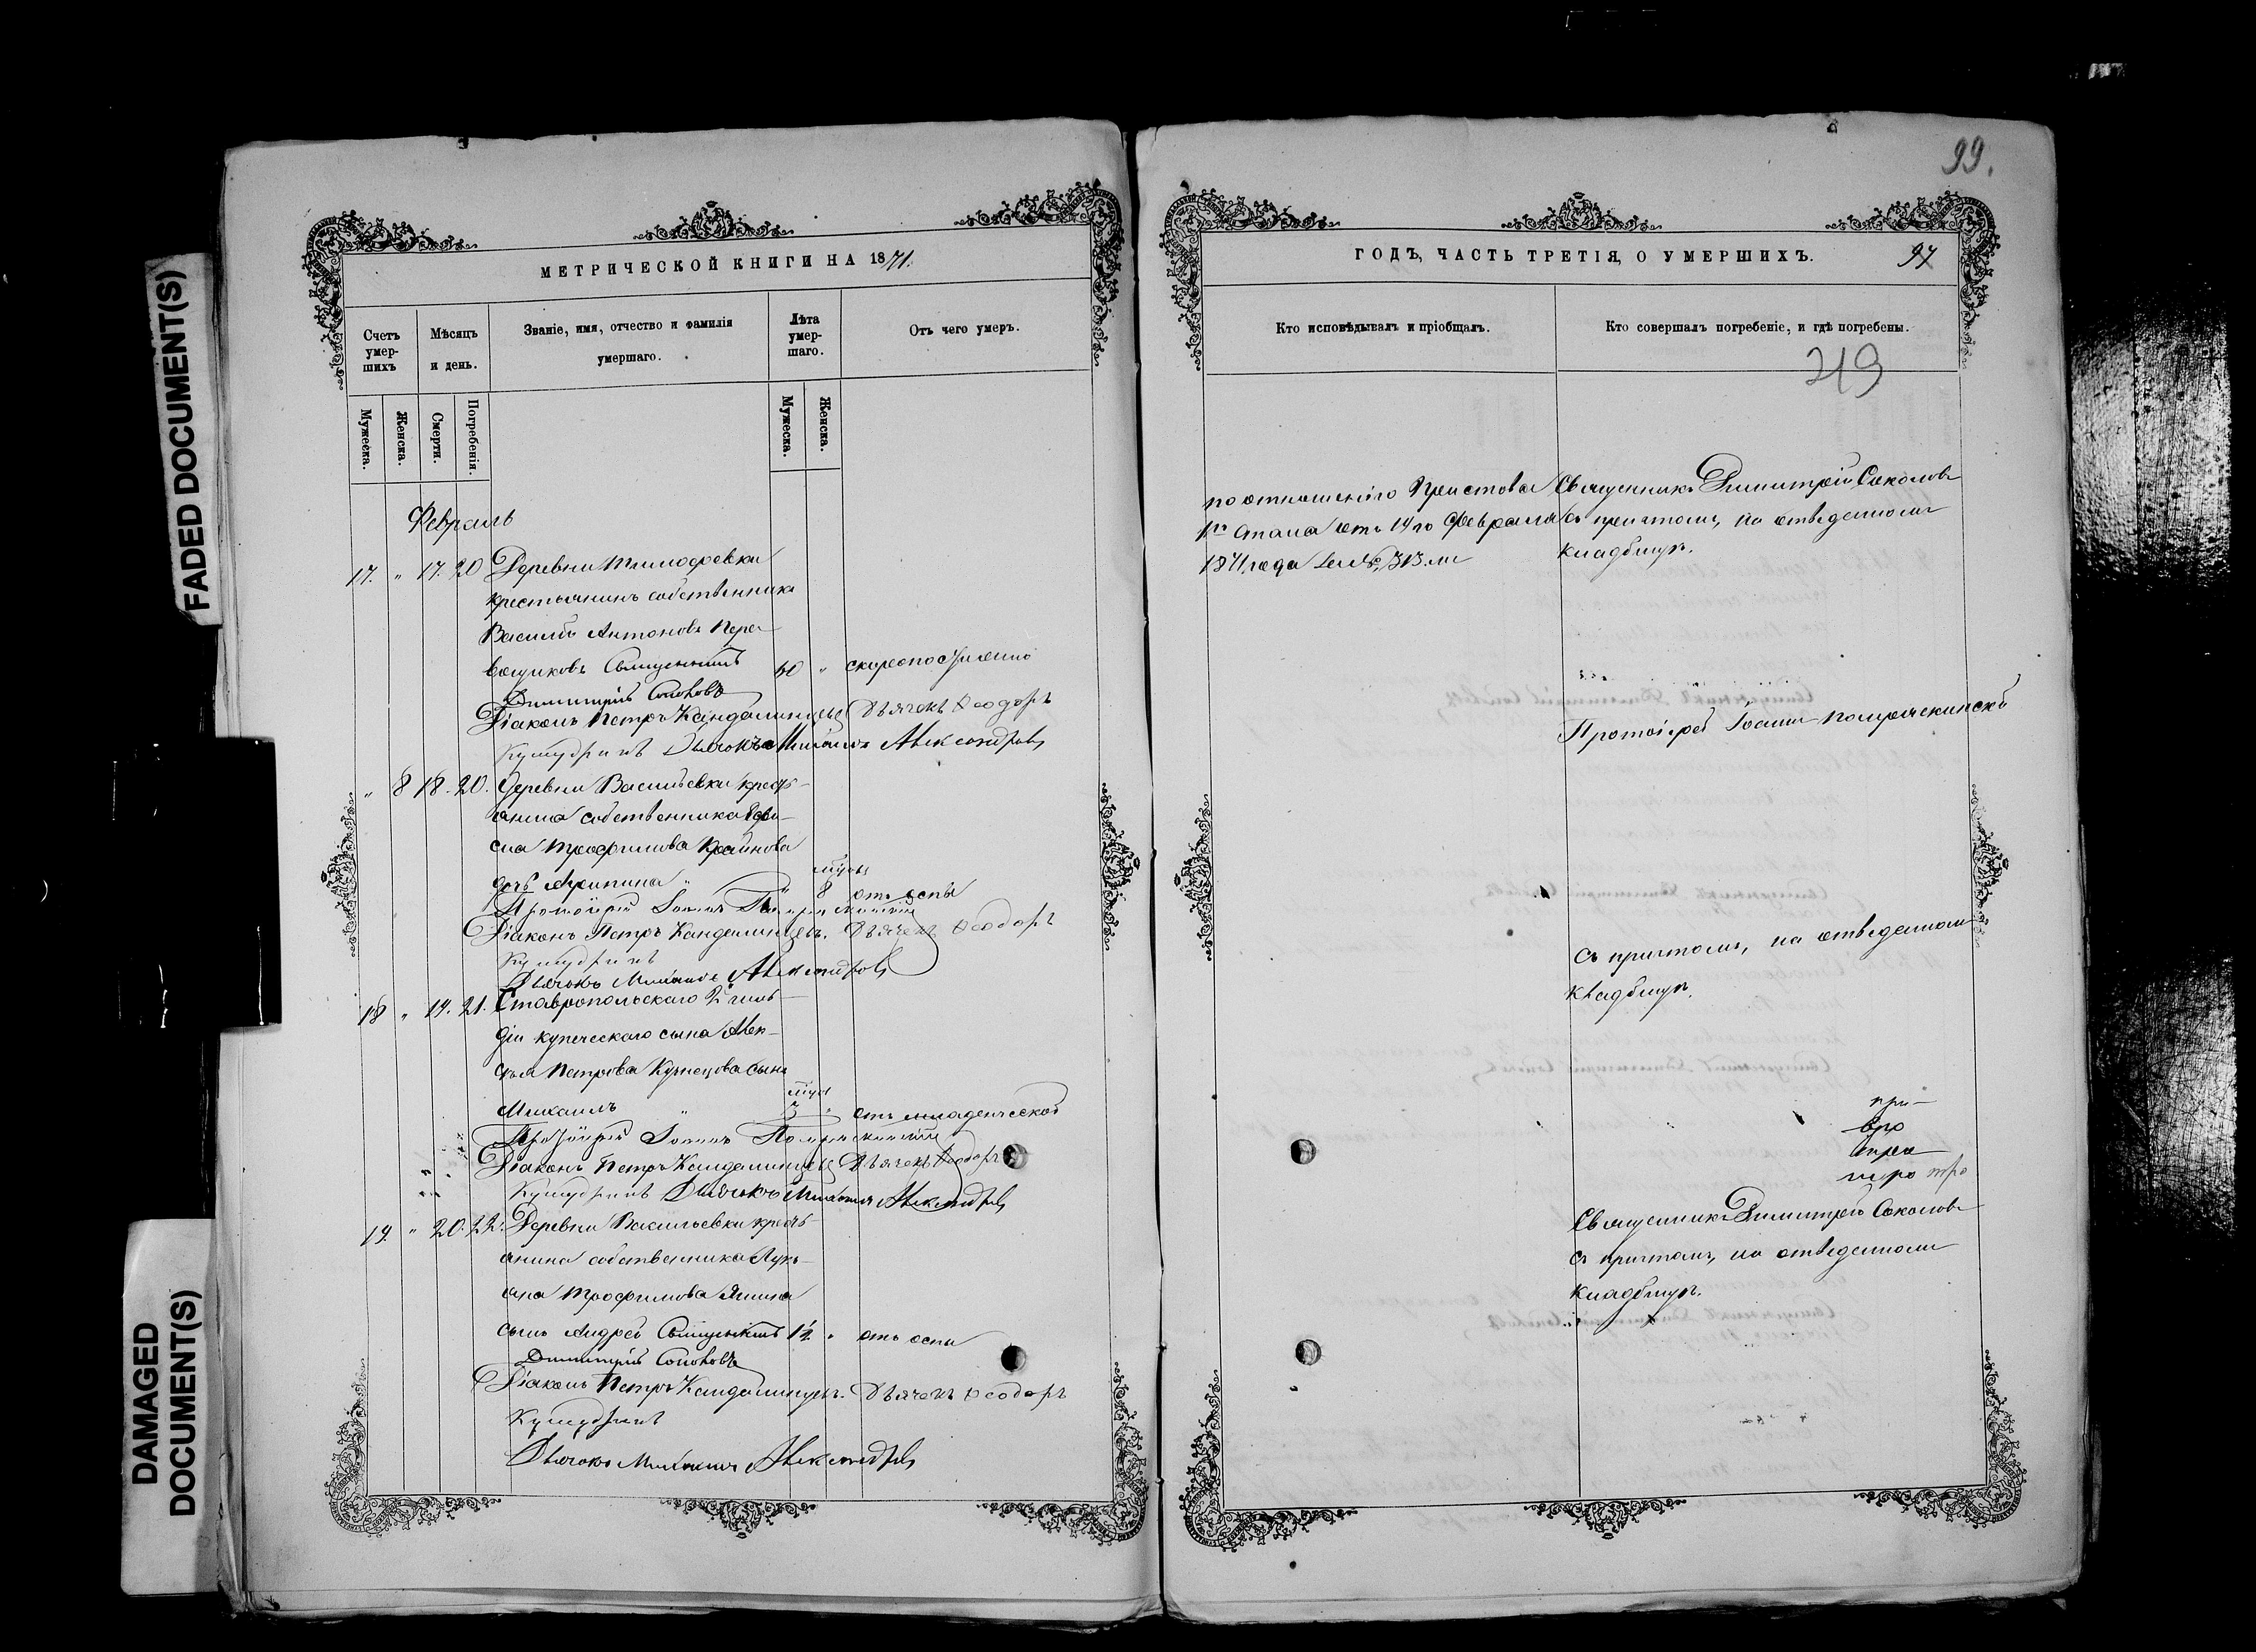 FADED DOCUMENT(S)
DAMAGED
DOCUMENT(S)
МЕТРИЧЕСКОЙ КНИГИ НА 1871.
Счетъ
умер-
шихъ
Мѣсяцъ
и день.
Званіе, имя, отчество и фамилія
умершаго.
Лѣта
умер-
шаго.
Отъ чего умеръ.
Мужеска.
Женска.
Смерти.
Погребенія.
Мужеска.
Женска.
Февраль
17. " 17. 20 Деревни Тимофеевки
крестьянинъ собственникъ
Василій Антоновъ Пере-
вощиковъ Священникъ 60 " скоропостижно
Димитрій Соколовъ
Діаконъ Петръ Кандалинцевъ Дьячекъ Ѳеодоръ
Дьячокъ Михаилъ Александровъ
" 8 18. 20. Деревни Васильевки кресть-
янина собственника
Трофимова Крайнова
дочь Агрипина " 8 отъ оспы
Протоіерей Іоаннъ
Діаконъ Петръ Кандалинцевъ. Дьячекъ Ѳеодоръ
Дьячокъ Михаилъ Александровъ
18 " 19. 21. Ставропольскаго 2й гиль-
діи купеческаго сына Алек-
сѣя Петрова Кузнецова сынъ
Михаилъ " 3 " отъ младенческой
Протоіерей Іоаннъ
Діаконъ Петръ Кандалинцевъ Дьячекъ Ѳеодоръ
Дьячокъ Михаилъ Александровъ
19. " 20. 22. Деревни Васильевки кресть-
янина собственника Лукь-
яна Трофимова Янина
сынъ Андрей Священникъ 1½ " отъ оспы
Димитрій Соколовъ
Діаконъ Петръ Кандалинцевъ. Дьячекъ Ѳеодоръ
Дьячокъ Михаилъ Александровъ
99.
ГОДЪ, ЧАСТЬ ТРЕТІЯ, О УМЕРШИХЪ.
97
Кто исповѣдывалъ и пріобщалъ.
Кто совершалъ погребеніе, и гдѣ погребены.
219
по отношенію Пристава
1го стана отъ 19го Февраля
1871 года за № 313.мъ
Священникъ Димитрій Соколовъ
съ причтомъ, на отведенномъ
кладбищѣ.
Протоіерей Іоаннъ
съ причтомъ, на отведенномъ
кладбищѣ.
при-
Священникъ Димитрій Соколовъ
съ причтомъ, на отведенномъ
кладбищѣ.